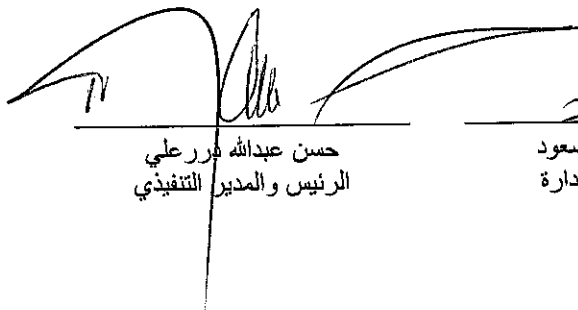 حسن عبدالله درر علي
الرئيس والمدير التنفيذي
سعود
دارة